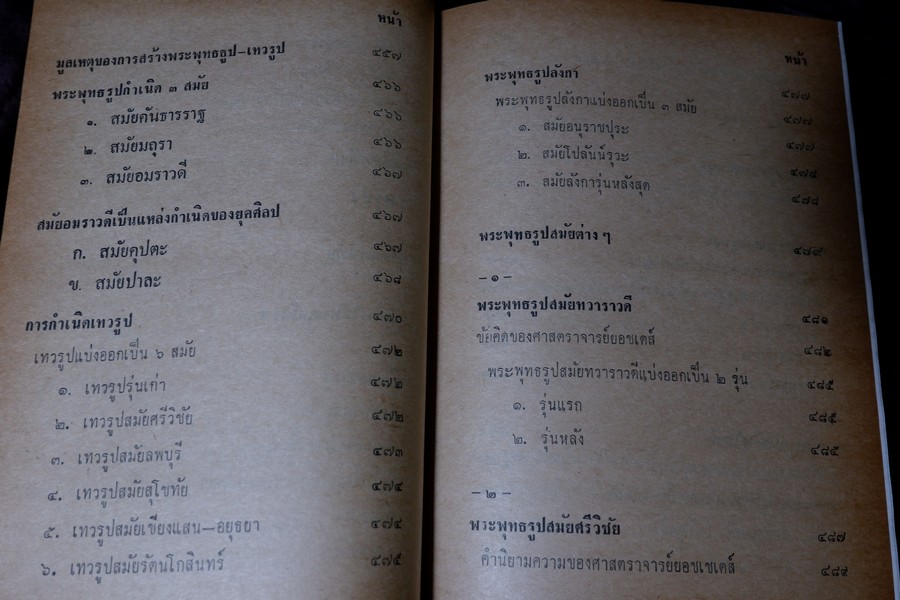 หน้า
มูลเหตุของการสร้างพระพุทธรูป-เทวรูป ๔๕๗
พระพุทธรูปกำเนิด ๓ สมัย ๔๖๖
๑. สมัยคันธารราฐ ๔๖๖
๒. สมัยมถุรา ๔๖๖
๓. สมัยอมราวดี ๔๖๗
สมัยอมราวดีเป็นแหล่งกำเนิดของยุคศิลป ๔๖๗
ก. สมัยคุปตะ ๔๖๗
ข. สมัยปาละ ๔๖๘
การกำเนิดเทวรูป ๔๗๐
เทวรูปแบ่งออกเป็น ๖ สมัย ๔๗๒
๑. เทวรูปรุ่นเก่า ๔๗๒
๒. เทวรูปสมัยศรีวิชัย ๔๗๒
๓. เทวรูปสมัยลพบุรี ๔๗๓
๔. เทวรูปสมัยสุโขทัย ๔๗๔
๕. เทวรูปสมัยเชียงแสน—อยุธยา ๔๗๔
๖. เทวรูปสมัยรัตนโกสินทร์ ๔๗๕
หน้า
พระพุทธรูปลังกา ๔๗๗
พระพุทธรูปลังกาแบ่งออกเป็น ๓ สมัย ๔๗๗
๑. สมัยอนุราชปุระ ๔๗๗
๒. สมัยโปลันน์รุวะ ๔๗๘
๓. สมัยลังการุ่นหลังสุด ๔๗๘
พระพุทธรูปสมัยต่าง ๆ ๔๘๙
—๑—
พระพุทธรูปสมัยทวาราวดี ๔๘๑
ข้อคิดของศาสตราจารย์ยอชเดส์ ๔๘๒
พระพุทธรูปสมัยทวาราวดีแบ่งออกเป็น ๒ รุ่น ๔๘๕
๑. รุ่นแรก ๔๘๕
๒. รุ่นหลัง ๔๘๕
—๒—
พระพุทธรูปสมัยศรีวิชัย ๔๘๗
คำนิยามความของศาสตราจารย์ยอชเซเดส์ ๔๘๙